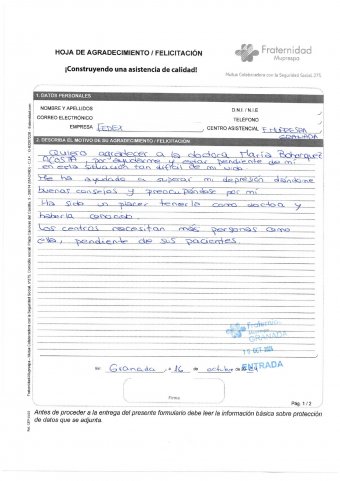 HOJA DE AGRADECIMIENTO / FELICITACIÓN
¡Construyendo una asistencia de calidad!
Fraternidad
Muprespa
Mutua Colaboradora con la Seguridad Social, 275
1. DATOS PERSONALES
NOMBRE Y APELLIDOS
D.N.I. / N.I.E
CORREO ELECTRÓNICO
TELÉFONO
EMPRESA FEDEX
CENTRO ASISTENCIAL F. MUPRESPA
GRANADA
2. DESCRIBA EL MOTIVO DE SU AGRADECIMIENTO / FELICITACIÓN
Quiero agradecer a la doctora María Bohorquez
Acosta, por ayudarme y estar pendiente de mi
en esta situación tan difícil de mi vida.
Me ha ayudado a superar mi depresión dándome
buenos consejos y preocupándose por mí
Ha sido un placer tenerla como doctora y
haberla conocido.
Los centros necesitan más personas como
ella, pendiente de sus pacientes.
Fraternidad
Muprespa
GRANADA
OCT
ENTRADA
En Granada, 16 de octubre de
Firma
Pág. 1 / 2
Antes de proceder a la entrega del presente formulario debe leer la información básica sobre protección
de datos que se adjunta.